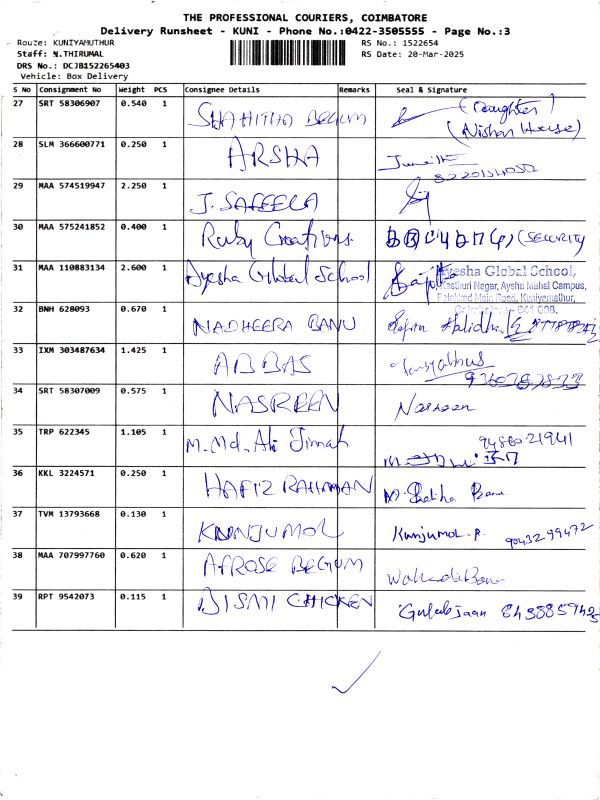 THE PROFESSIONAL COURIERS, COIMBATORE
Delivery Runsheet - KUNI - Phone No.:0422-3505555 - Page No.:3
Route: KUNIYAMUTHUR RS No.: 1522654
Staff: N.THIRUMAL RS Date: 20-Mar-2025
DRS No.: DCJB152265403
Vehicle: Box Delivery
S No Consignment No Weight PCS Consignee Details Remarks Seal & Signature
27 SRT 58306907 0.540 1 SHAHITHA BEGUM (Daughter)
(Nishan House)
28 SLM 366600771 0.250 1 ARSHA
29 MAA 574519947 2.250 1 J. SAFEELA
30 MAA 575241852 0.400 1 Ruby Creations. (SECURITY
31 MAA 110883134 2.600 1 Ayesha Global School Ayesha Global School,
Kasthuri Nagar, Aysha Mahal Campus,
Palakkad Main Road, Kuniyamuthur,
32 BNH 628093 0.670 1 NADHEERA BANU
33 IXM 303487634 1.425 1 ABBAS
34 SRT 58307009 0.575 1 NASREEN Nasreen
35 TRP 622345 1.105 1 M. Md. Ali Jinnah 9486021941
36 KKL 3224571 0.250 1 HAFIZ RAHMAN
37 TVM 13793668 0.130 1 KUNJUMOL Kunjumol. P. 9043299472
38 MAA 707997760 0.620 1 AFROSE BEGUM
39 RPT 9542073 0.115 1 BISMI CHICKEN Gulabjaan